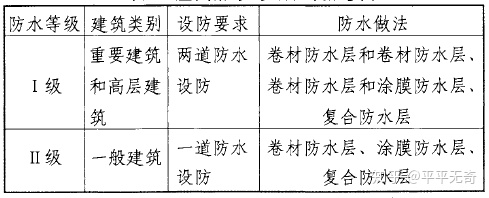 防水等级 建筑类别 设防要求 防水做法
Ⅰ级 重要建筑和高层建筑 两道防水设防 卷材防水层和卷材防水层、卷材防水层和涂膜防水层、复合防水层
Ⅱ级 一般建筑 一道防水设防 卷材防水层、涂膜防水层、复合防水层
知乎 @平平无奇